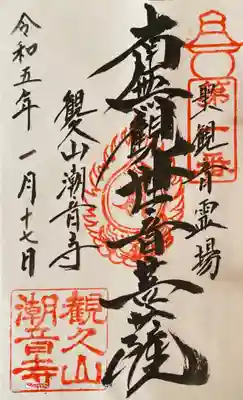 聖観音霊場
南無観世音菩薩
観久山潮音寺
令和五年一月十七日
観久山
潮音寺